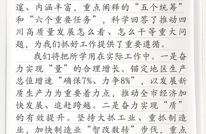 邃、内涵丰富，重点阐释的“五个统筹”
和“六个重要任务”，科学回答了推动四
川高质量发展怎么看、怎么干等重大问
题，为我们抓好工作提供了重要遵循。
我们将把所学用在实际工作中。一是奋
力实现“量”的合理增长。锚定地区生产
总值增速“确保7%、力争8%”，以发展新
质生产力为重要着力点，推动全市经济加
快发展、追赶跨越。二是奋力实现“质”
的有效提升。坚持大抓工业、重抓制造
业，加快制造业“智改数转”步伐，重点